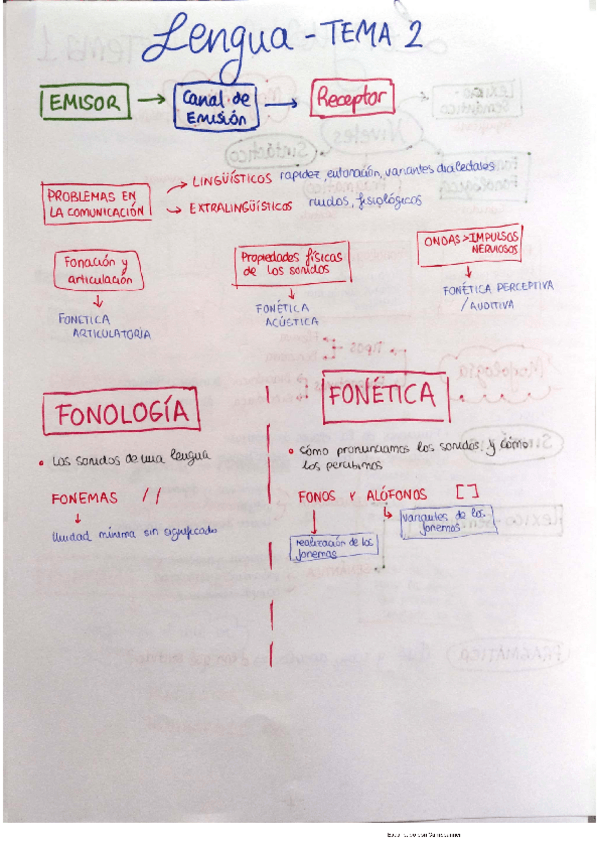 Lengua - TEMA 2
EMISOR → Canal de Emisión → Receptor
PROBLEMAS EN LA COMUNICACIÓN
→ LINGÜÍSTICOS rapidez, entonación, variantes dialectales
→ EXTRALINGÜÍSTICOS ruidos, fisiológicos
Fonación y
articulación
↓
FONETICA
ARTICULATORIA
Propiedades físicas
de los sonidos
↓
FONÉTICA
ACÚSTICA
ONDAS > IMPULSOS
NERVIOSOS
↓
FONÉTICA PERCEPTIVA
/ AUDITIVA
FONOLOGÍA
• Los sonidos de una lengua
FONEMAS / /
↓
Unidad mínima sin significado
FONÉTICA
• cómo pronunciamos los sonidos y cómo
los percibimos
FONOS Y ALÓFONOS [ ]
realización de los
fonemas
variantes de los
fonemas